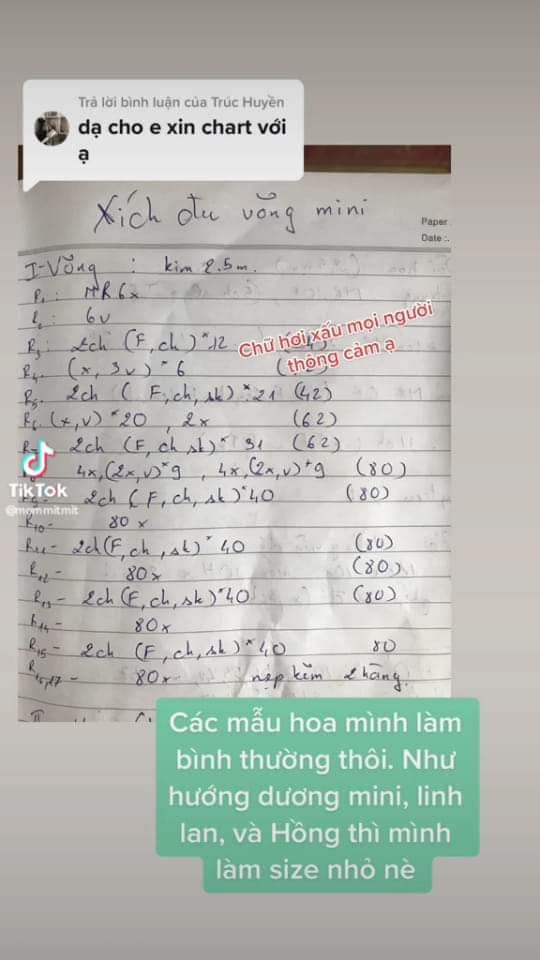 Trả lời bình luận của Trúc Huyền
dạ cho e xin chart với
ạ
Xích đu võng mini
Paper
Date :.
I-Võng : kim 2.5m.
R1 : MR 6x
6v
R3 : 2ch (F, ch) * 12
Chữ hơi xấu mọi người
thông cảm ạ
R4 - (x, 3v) * 6
R5 - 2ch ( F, ch, sk) * 21 (42)
R6 (x, v) * 20 , 2x (62)
2ch (F, ch sk) * 31 (62)
4x, (2x, v) * 9 , 4x, (2x, v) * 9 (80)
2ch ( F, ch, sk) * 40 (80)
R10 - 80x
R11 - 2ch (F, ch , sk) * 40 (80)
R12 - 80x (80)
R13 - 2ch (F, ch, sk) * 40 (80)
R14 - 80x
R15 - 2ch (F, ch, sk) * 40 80
R16,17 - 80x - nẹp kẽm 2 hàng.
TikTok
@mommitmit
Các mẫu hoa mình làm
bình thường thôi. Như
hướng dương mini, linh
lan, và Hồng thì mình
làm size nhỏ nè